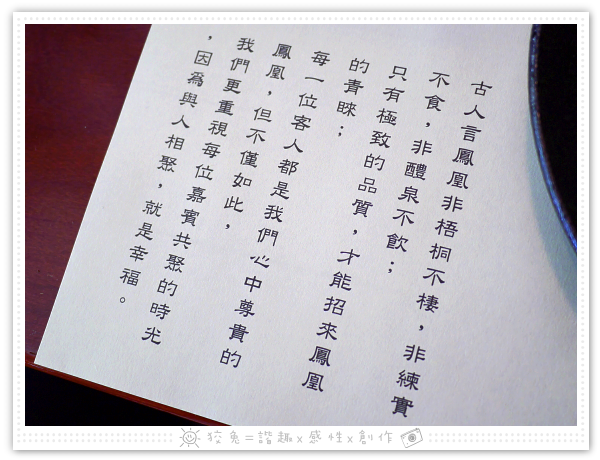 古人言鳳凰非梧桐不棲，非練實
不食，非醴泉不飲；
只有極致的品質，才能招來鳳凰
的青睞；
每一位客人都是我們心中尊貴的
鳳凰，但不僅如此，
我們更重視每位嘉賓共聚的時光
，因為與人相聚，就是幸福。
狡兔=諧趣x感性x創作